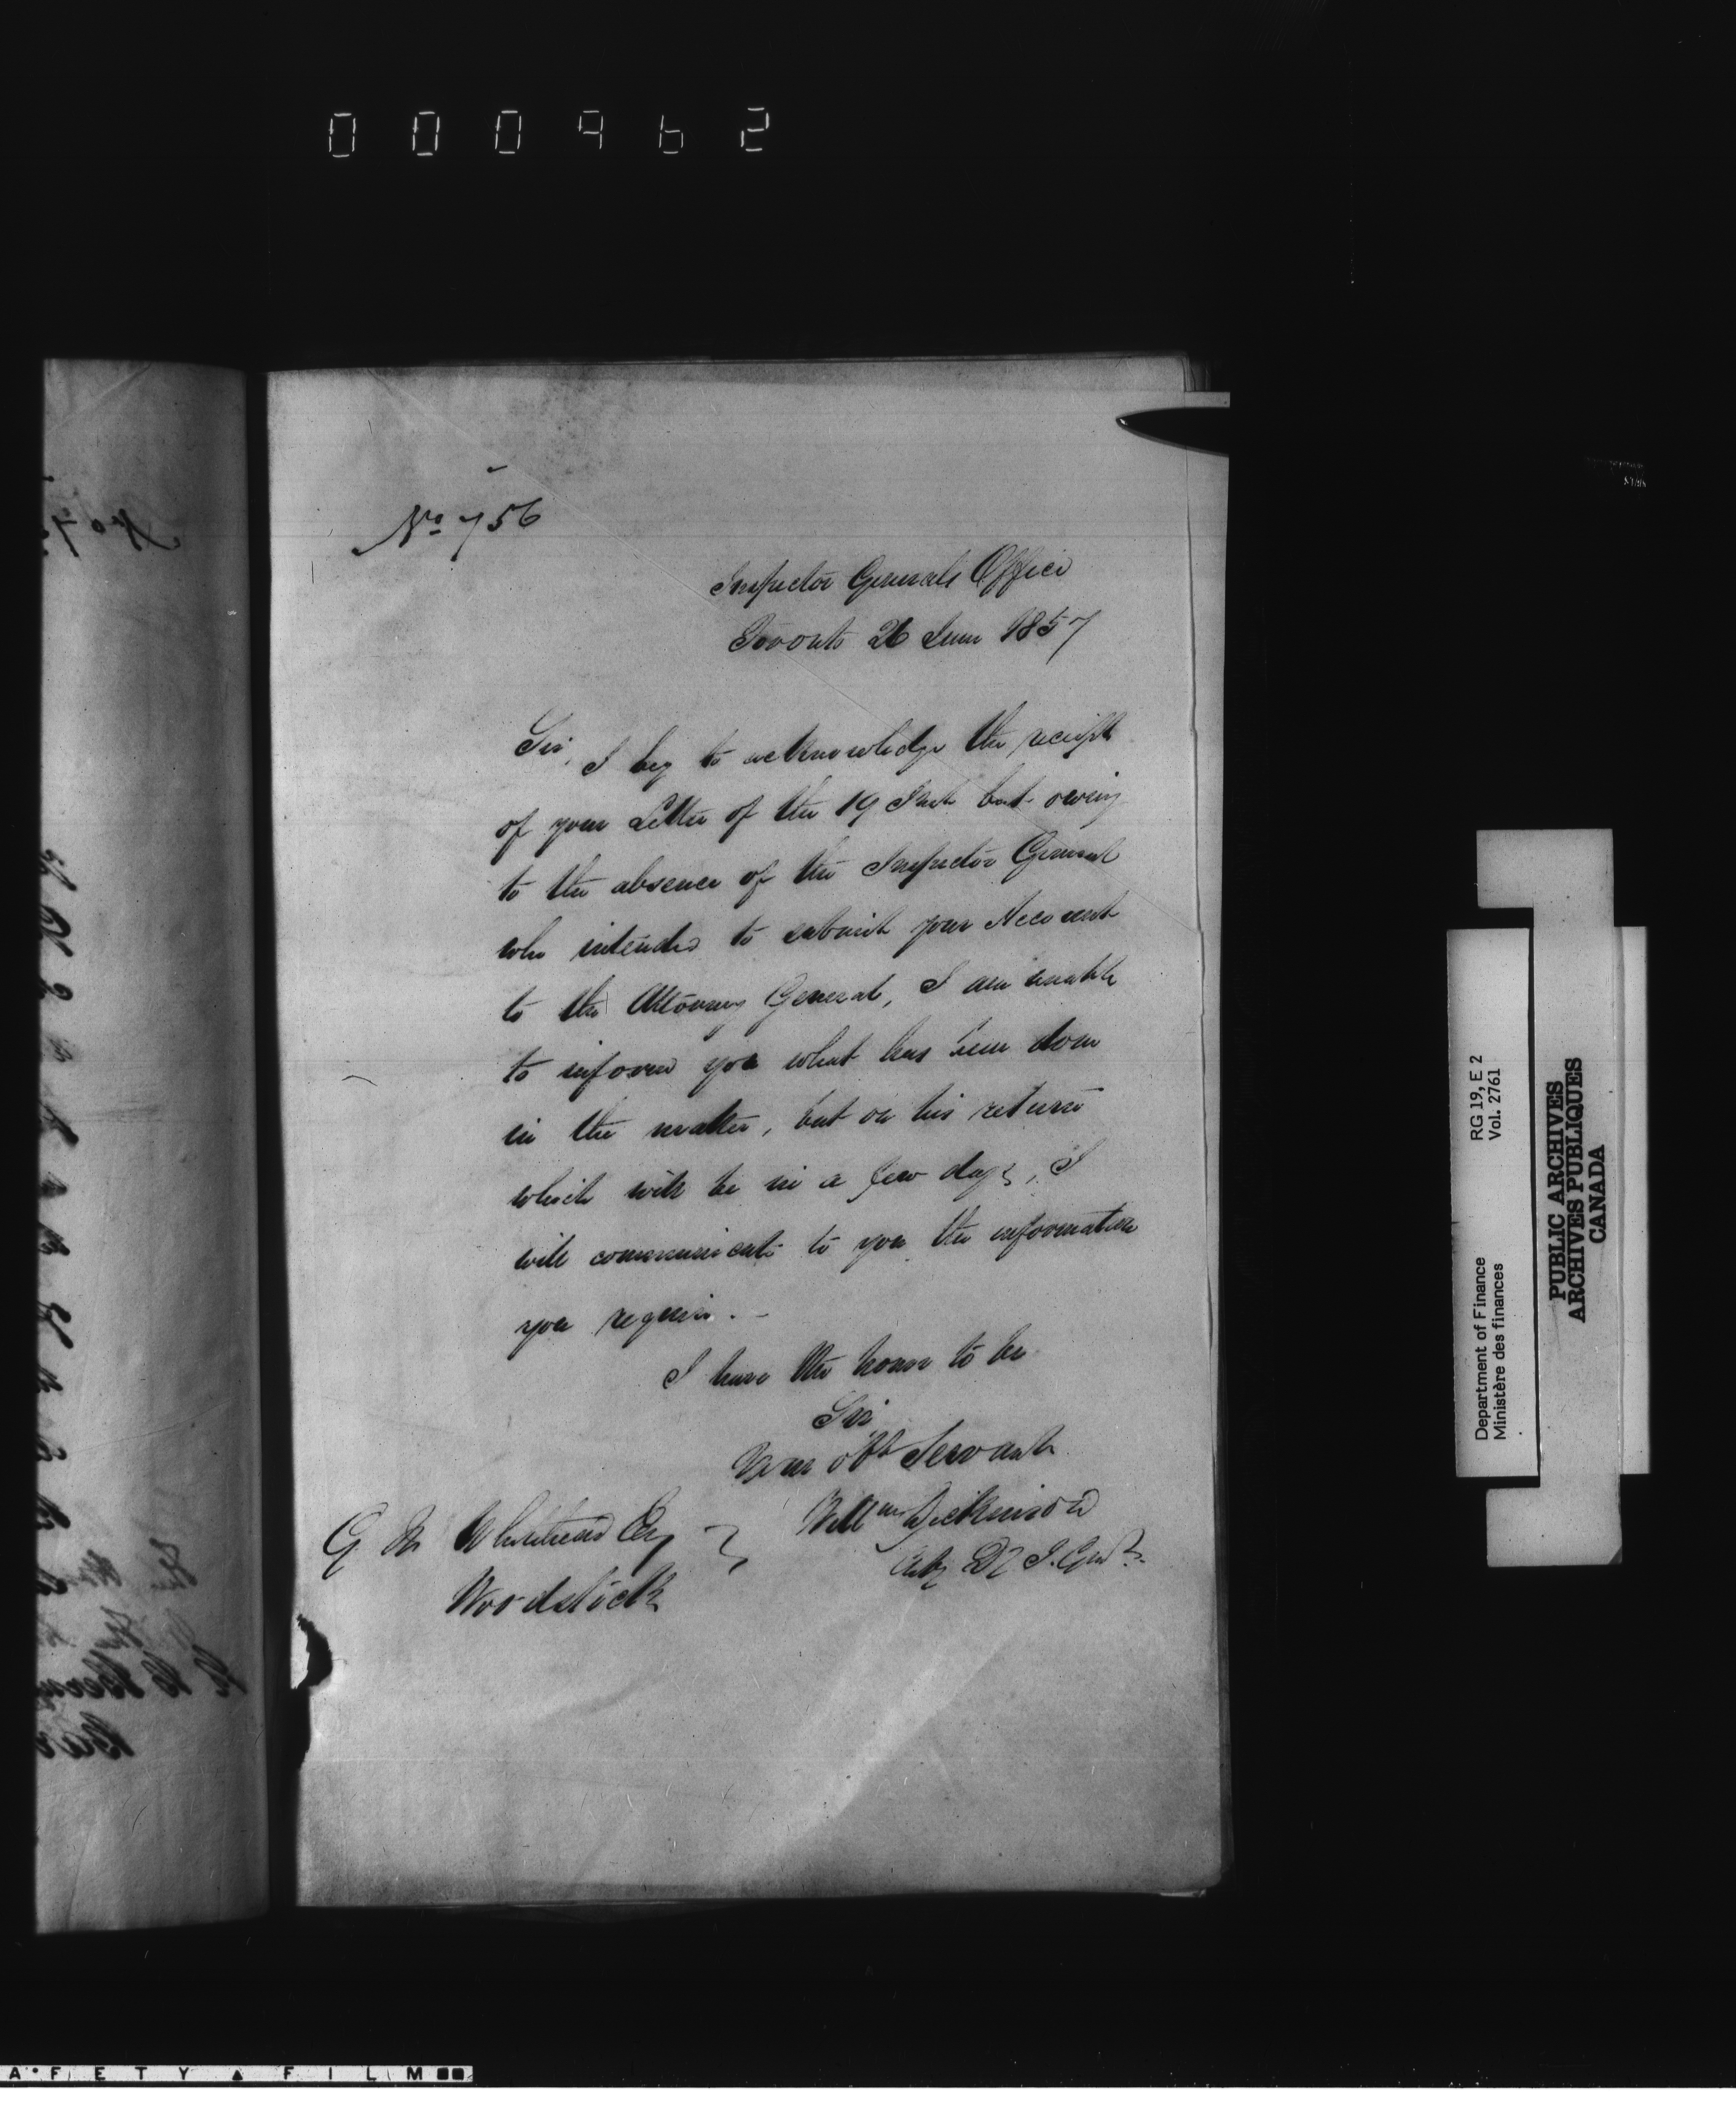 000962
No 756
Inspector Generals Office
Toronto 26 June 1857
Sir, I beg to acknowledge the receipt
of your Letter of the 19 Inst but owing
to the absence of the Inspector General
who intended to submit your Account
to the Attorney General, I am unable
to inform you what has been done
in the matter, but on his return
which will be in a few days, I
will communicate to you the information
you require. -
I have the honor to be
Sir
Your obt Servant
Willm Dickinson
Actg Dy I. Genl.
G. Whitehead Esq
Woodstock
Department of Finance RG 19, E 2
Ministère des finances Vol. 2761
PUBLIC ARCHIVES
ARCHIVES PUBLIQUES
CANADA
AFETY FILM